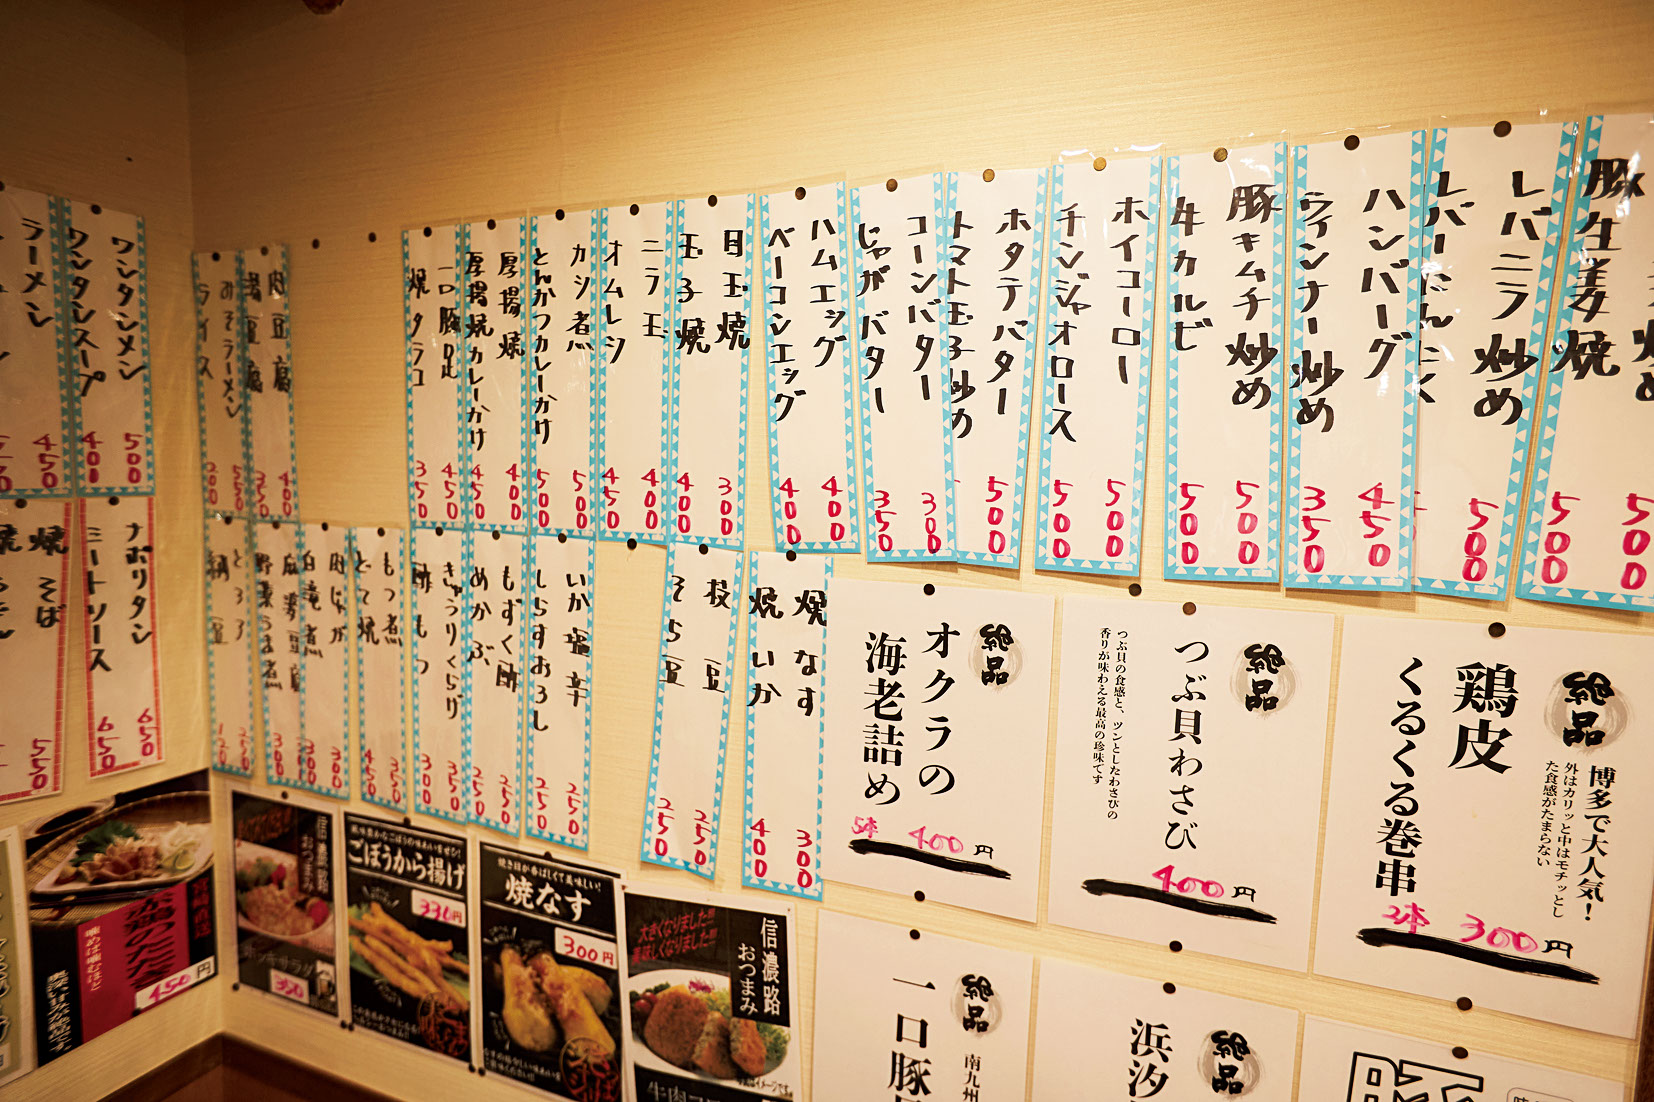 豚生姜焼
500
500
レバニラ炒め
500
レバーにんにく
ハンバーグ
450
ウィンナー炒め
350
豚キムチ炒め
500
牛カルビ
500
ホイコーロー
500
チンジャオロース
500
ホタテバター
500
トマト玉子炒め
コーンバター
300
じゃがバター
350
ハムエッグ
400
ベーコンエッグ
400
目玉焼
300
玉子焼
400
ニラ玉
400
オムレツ
450
カツ煮
500
とんかつカレーかけ
500
厚揚焼
400
厚揚焼カレーかけ
450
一口豚足
450
焼タラコ
350
肉豆腐
400
湯豆腐
350
みそラーメン
550
ライス
200
ワンタンメン
500
ワンタンスープ
400
ラーメン
450
焼なす
300
焼いか
400
枝豆
250
そら豆
250
いか塩辛
250
しらすおろし
250
もずく酢
250
めかぶ
250
きゅうりくらげ
350
酢もつ
300
もつ煮
350
どて焼
450
肉じゃが
300
白滝煮
300
麻婆豆腐
野菜うま煮
300
とろろ
250
納豆
120
ナポリタン
650
ミートソース
650
焼そば
550
絶品
鶏皮
くるくる巻串
博多で大人気！
外はカリッと中はモチッとし
た食感がたまらない
2本 300円
絶品
つぶ貝わさび
つぶ貝の食感と、ツンとしたわさびの
香りが味わえる最高の珍味です
400円
絶品
オクラの
海老詰め
5本 400円
絶品
浜汐
絶品
一口豚
南九州
信濃路
おつまみ
大きくなりました!!!
美味しくなりました!!!
焼き目が香ばしくて美味しい！
焼なす
300円
風味豊かなごぼうの味わいをぜひ！
ごぼうから揚げ
330円
信濃路
おつまみ
350
宮崎直送
赤鶏のたたき
噛めば噛むほど
450円